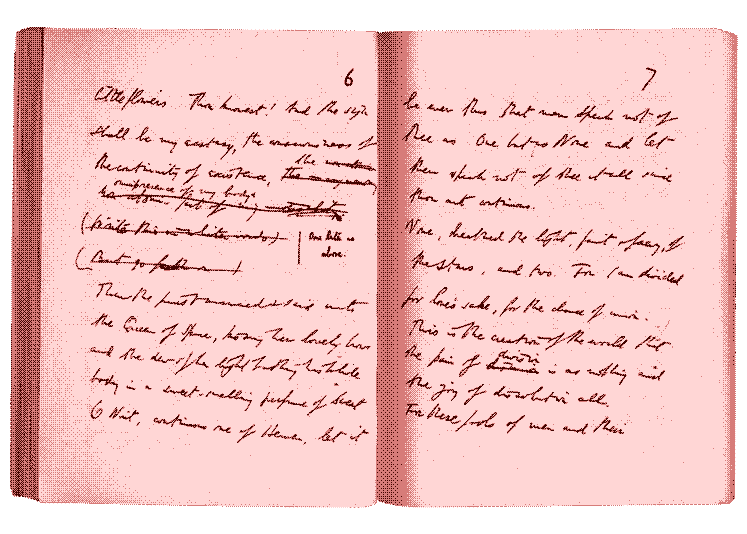 6
little flowers Thou knowest! And the sign
shall be my ecstasy, the consciousness of
the continuity of existence, the
omnipresence of my body
(Write this in whiter words)
as
above.
(But go forth on)
Then the priest answered & said unto
the Queen of Space, kissing her lovely brows
and the dew of her light bathing his whole
body in a sweet-smelling perfume of sweat
O Nuit, continuous one of Heaven, let it
7
be ever thus that men speak not of
Thee as One but as None and let
them speak not of thee at all since
thou art continuous.
None, breathed the light, faint & faery, of
the stars, and two. For I am divided
for love's sake, for the chance of union.
This is the creation of the world that
the pain of division is as nothing and
the joy of dissolution all.
For these fools of men and their